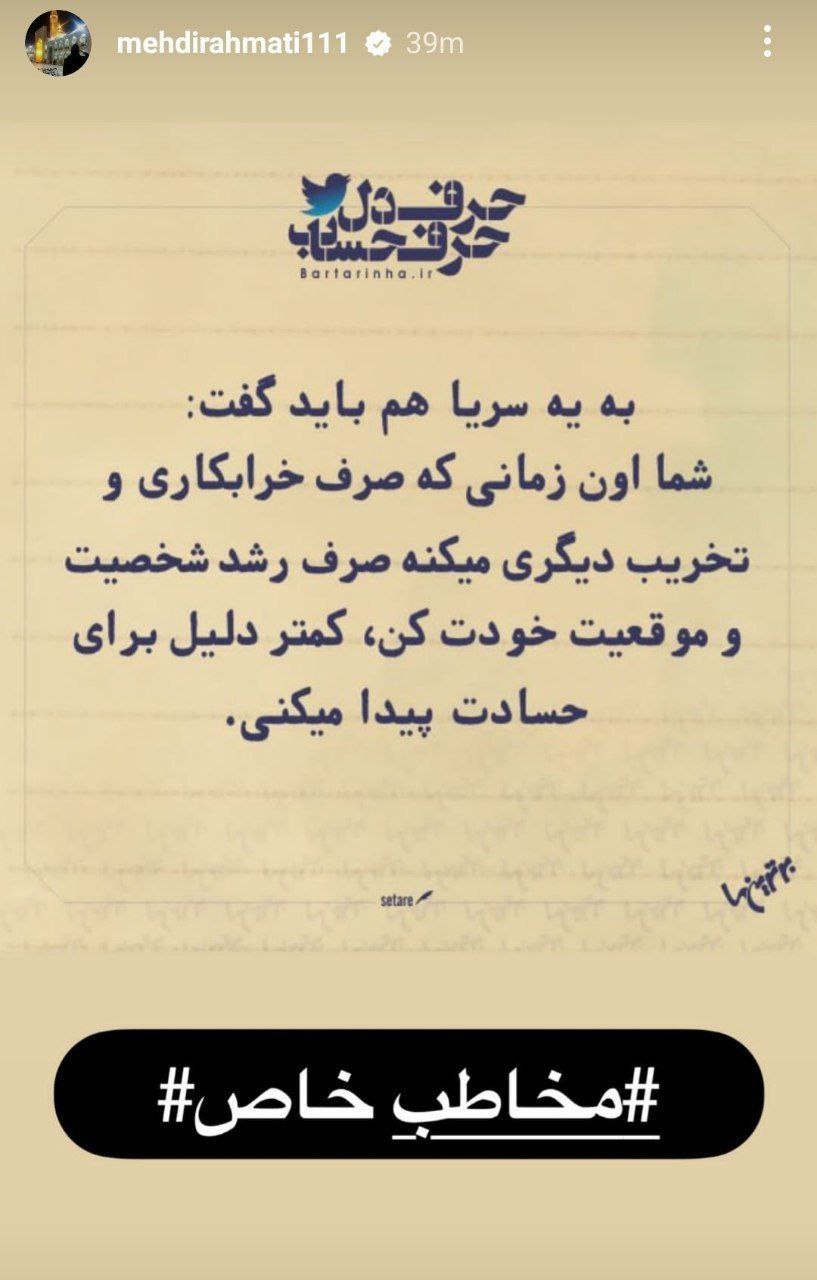 mehdirahmati111 39m
حرف دل
حرف حساب
Bartarinha.ir
به یه سریا هم باید گفت:
شما اون زمانی که صرف خرابکاری و
تخریب دیگری میکنه صرف رشد شخصیت
و موقعیت خودت کن، کمتر دلیل برای
حسادت پیدا میکنی.
setare
برترین‌ها
#مخاطب خاص#